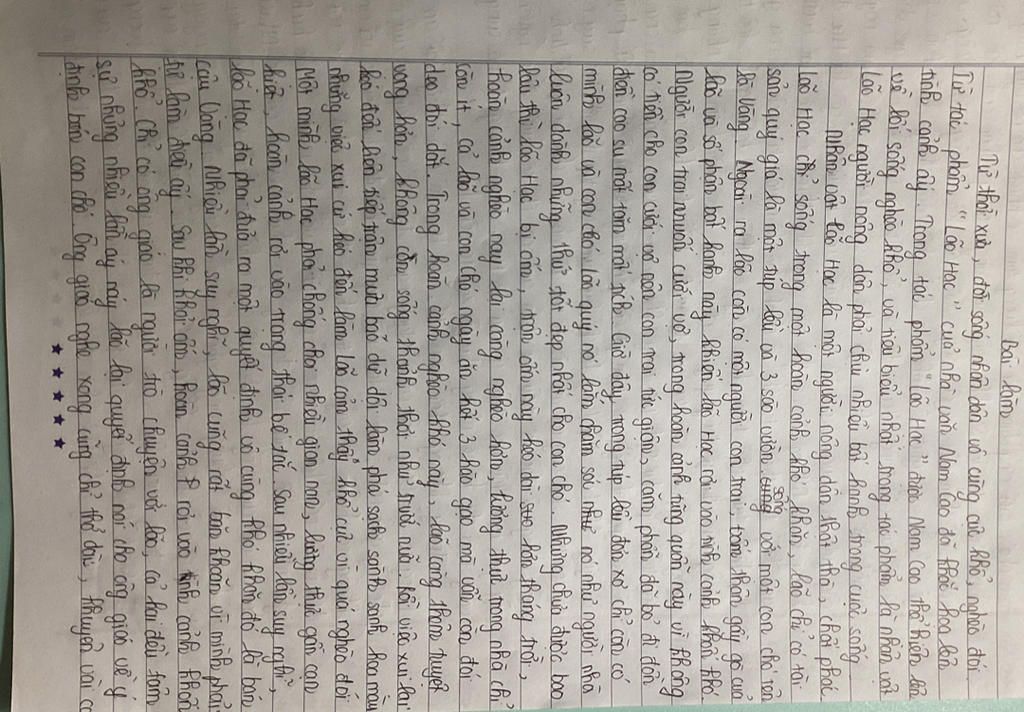 Bài làm
Từ thời xưa, đời sống nhân dân vô cùng cơ khổ, nghèo đói.
Từ tác phẩm "Lão Hạc" của nhà văn Nam Cao đã khắc họa lên
tình cảnh ấy. Trong tác phẩm "Lão Hạc" được Nam Cao thể hiện lên
về lối sống nghèo khổ, và tiêu biểu nhất trong tác phẩm là nhân vật
Lão Hạc người nông dân phải chịu nhiều bất hạnh trong cuộc sống
Nhân vật Lão Hạc là một người nông dân thật thà, chất phác
Lão Hạc chỉ sống trong một hoàn cảnh khó khăn, lão chỉ có tài
sản quý giá là một túp lều và 3 sào vườn sống với một con chó tên
là Vàng. Ngoài ra lão còn có một người con trai, toàn thân gầy gò của
lão và số phận bất hạnh này khiến lão Hạc rơi vào tình cảnh khốn khó
Người con trai muốn cưới vợ, trong hoàn cảnh túng quẫn này vì không
có tiền cho con cưới vợ nên con trai tức giận, căm phẫn đã bỏ đi đồn
điền cao su một tăm mất tích. Giờ đây trong túp lều đơn xơ chỉ còn có
mình lão và con chó, lão quý nó lắm chăm sóc như nó như người nhà
luôn dành những thứ tốt đẹp nhất cho con chó. Nhưng chưa được bao
lâu thì lão Hạc bị ốm, trận ốm này kéo dài suo hơn tháng trời,
hoàn cảnh nghèo nay lại càng nghèo hơn, lương thực trong nhà chỉ
còn ít, cả lão và con chó ngày ăn hết 3 hào gạo mà vẫn còn đói
deo đói dắt. Trong hoàn cảnh nghèo khó này, lão càng thêm tuyệt
vọng hơn, không còn sống thảnh thơi như trước nữa. Rồi việc xui lại
kéo đến liên tiếp trận mưa bão dữ dội làm phá sạch sành sanh hoa màu
những việc xui cứ kéo đến làm lão cảm thấy khổ cực vì quá nghèo đói
Một mình lão Hạc phải chống chọi nhiều gian nan, lương thực gần cạn
kiệt, hoàn cảnh rơi vào trạng thái bế tắc. Sau nhiều lần suy nghĩ,
lão Hạc đã phải đưa ra một quyết định vô cùng khó khăn đó là bán
cậu Vàng. Nhiều lần suy nghĩ, lão cũng rất băn khoăn vì mình phải
từ làm điều ấy. Sau khi khỏi ốm, hoàn cảnh rơi vào tình cảnh khốn
khổ. Chỉ có ông giáo là người trò chuyện với lão, cả hai đều tâm
sự nhưng nhiều lần ấy này lão lại quyết định nói cho ông giáo về ý
định bán con chó. Ông giáo nghe xong cũng chỉ thở dài, khuyên vài